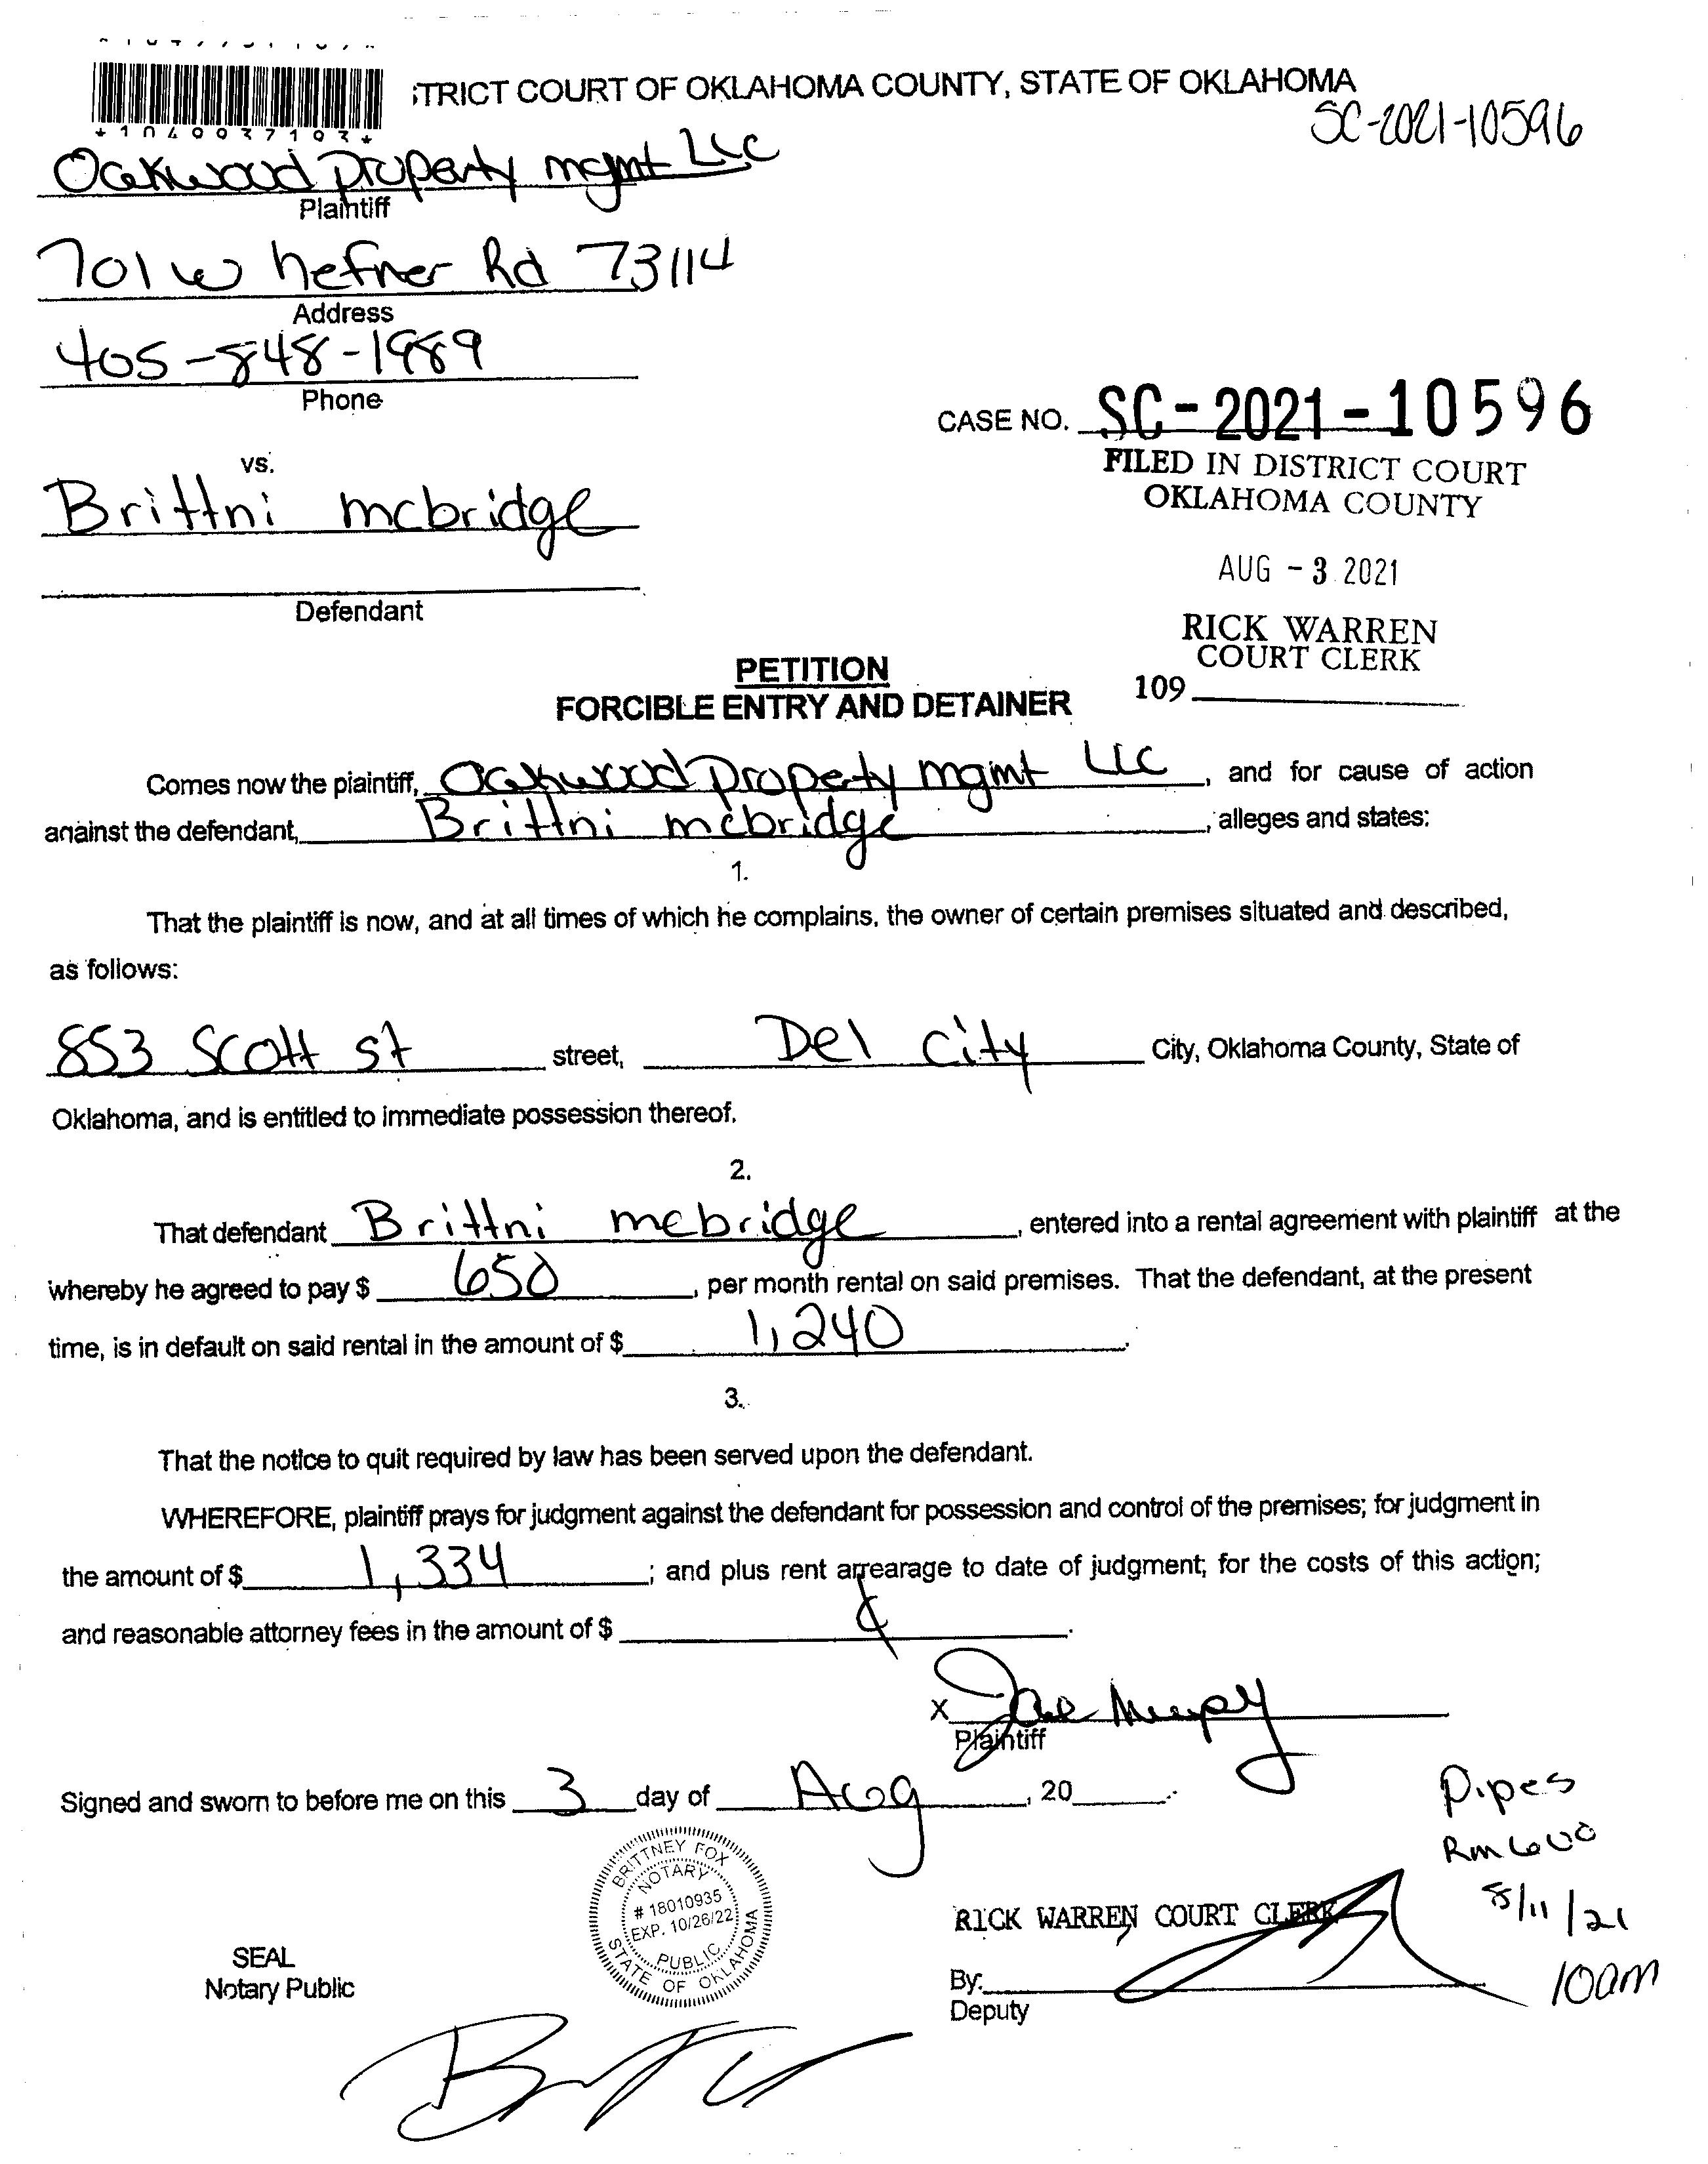 *1049937193*
TRICT COURT OF OKLAHOMA COUNTY, STATE OF OKLAHOMA
SC-2021-10596
Oakwood Property mgmt LLC
Plaintiff
701 W hefner Rd 73114
Address
405-848-1989
Phone
CASE NO. SC-2021-10596
FILED IN DISTRICT COURT
OKLAHOMA COUNTY
vs.
Brittni mcbridge
AUG - 3 2021
Defendant
RICK WARREN
COURT CLERK
109
PETITION
FORCIBLE ENTRY AND DETAINER
Comes now the plaintiff, Oakwood Property mgmt LLC, and for cause of action
against the defendant, Brittni mcbridge, alleges and states:
1.
That the plaintiff is now, and at all times of which he complains, the owner of certain premises situated and described,
as follows:
853 Scott st street, Del City City, Oklahoma County, State of
Oklahoma, and is entitled to immediate possession thereof.
2.
That defendant Brittni mcbridge, entered into a rental agreement with plaintiff at the
whereby he agreed to pay $ 650, per month rental on said premises. That the defendant, at the present
time, is in default on said rental in the amount of $ 1,240.
3.
That the notice to quit required by law has been served upon the defendant.
WHEREFORE, plaintiff prays for judgment against the defendant for possession and control of the premises; for judgment in
the amount of $ 1,334; and plus rent arrearage to date of judgment; for the costs of this action;
and reasonable attorney fees in the amount of $
X
Plaintiff
Signed and sworn to before me on this 3 day of Aug, 20
Pipes
Rm 600
8/11/21
10am
BRITTNEY FOX
NOTARY
# 18010935
EXP. 10/26/22
PUBLIC
STATE OF OKLAHOMA
RICK WARREN COURT CLERK
SEAL
Notary Public
By:
Deputy